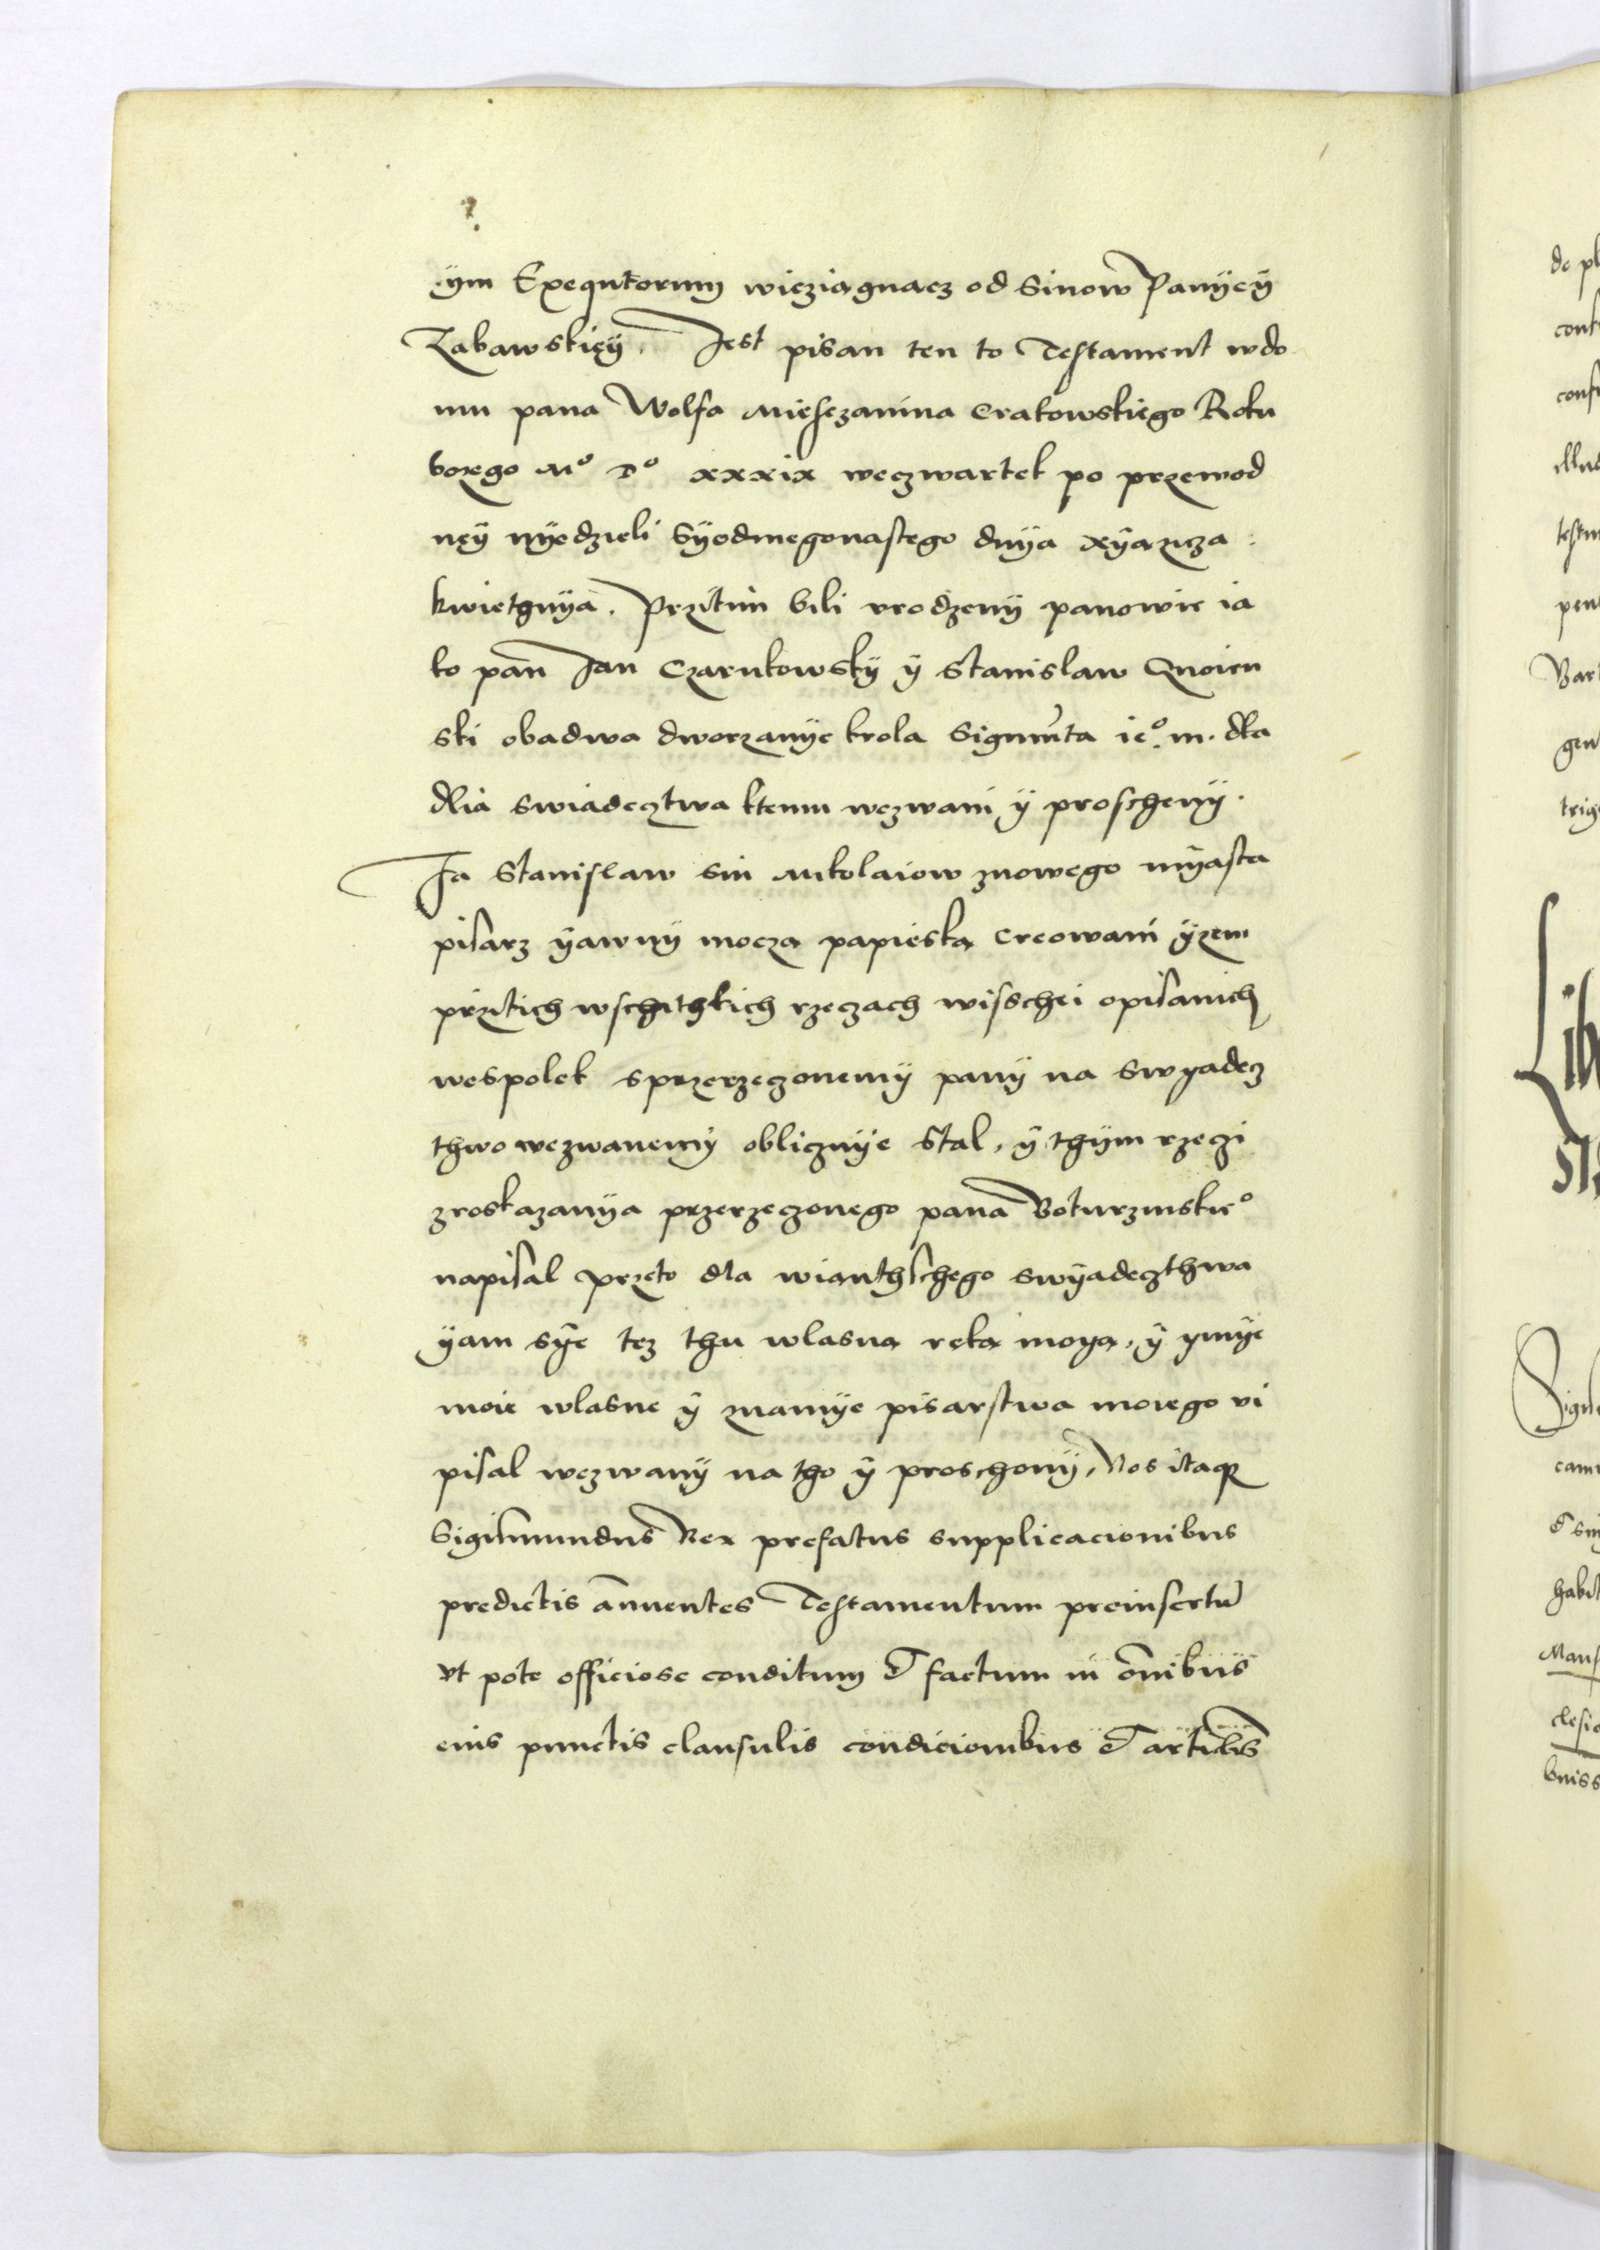 ÿm Exequtorum wicziagnacz od Sinow Panÿcÿ
Zabawskięÿ. Jest pisan ten to Testament wdo
mu pana Wolfa Miesczanina Crakowskięgo Roku
bożego Mº Dº xxxix weczwartek po przewod
nęÿ nÿedzieli Sÿodmegonastego dnÿa xÿązcza
kwietgnÿa. Przitim bili vrodzenÿ panowie ia
ko pan Jan Czarnkowskÿ ÿ Stanislaw Gnoien
ski obadwa dworzanÿe krola Sigmūta ieº. m. dla
dlia swiadecztwa ktemu wezwani ÿ proschenÿ.
Ja Stanislaw sin Mikolaiow znowego mÿasta
pisarz ÿawnÿ moczą papieską Creowani ÿzem
przitich wschithkich rzeczach wisschei opisanich
wespolek sprzerzeczonemÿ panÿ na swyadecz
thwo wezwanemÿ oblicznÿe stal, ÿ thÿm rzeczi
zroskazanÿa przerzeczonego pana Boturzinskieº
napisal przeto dla wianthschego swÿadeczthwa
ÿam sÿe tez thu wlasną ręką moyą, ÿ ymÿe
moie wlasne ÿ znamÿe pisarstwa moiego vi
pisal wezwanÿ na tho ÿ proschonÿ, Nos itaq;
Sigismundus Rex prefatus supplicacionibus
predictis ānuentes Testamentum preinsertū
vt pote officiose conditum et factum in ōnibus
eius punctis clausulis condicionibus et articlis
de pl
conf
conf
illud
testm
pen
Bar
gen
trig
Lib
Sigis
cam
et sin
habit
Mans
clesie
buiss